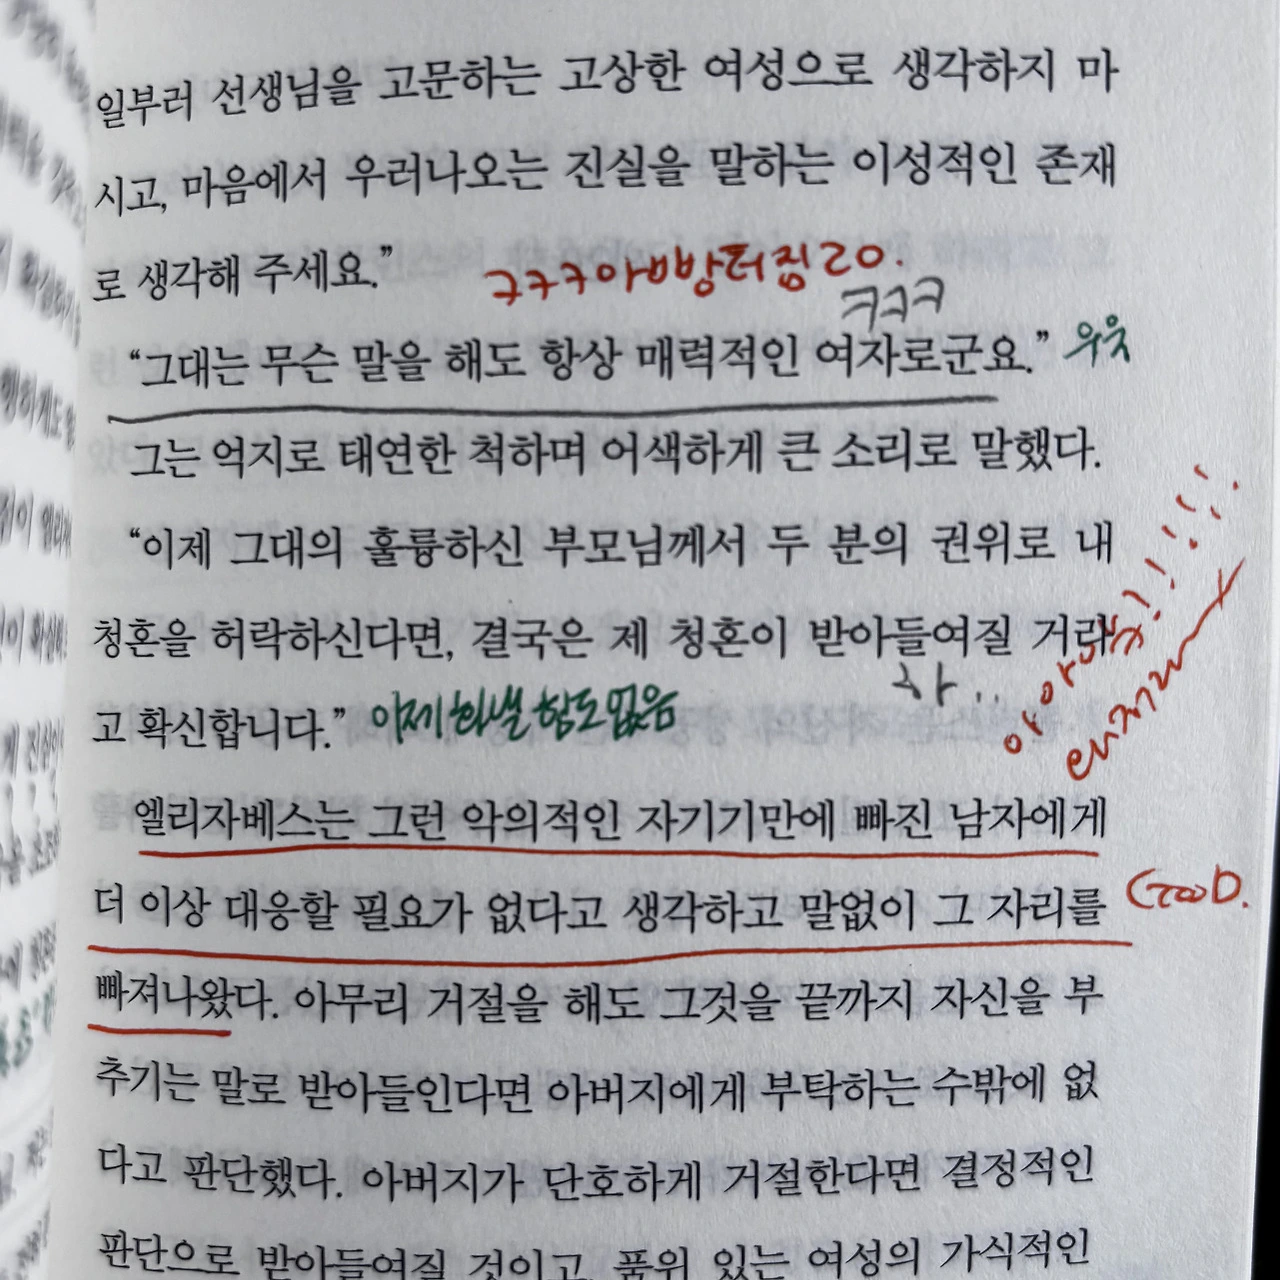 일부러 선생님을 고문하는 고상한 여성으로 생각하지 마
시고, 마음에서 우러나오는 진실을 말하는 이성적인 존재
로 생각해 주세요.”
ㅋㅋㅋ아빵터짐ㄹㅇ.
ㅋㅋㅋ
“그대는 무슨 말을 해도 항상 매력적인 여자로군요.” 우웃
그는 억지로 태연한 척하며 어색하게 큰 소리로 말했다.
“이제 그대의 훌륭하신 부모님께서 두 분의 권위로 내
청혼을 허락하신다면, 결국은 제 청혼이 받아들여질 거라
하..
고 확신합니다.” 이제 화낼 힘도 없음
엘리자베스는 그런 악의적인 자기기만에 빠진 남자에게
더 이상 대응할 필요가 없다고 생각하고 말없이 그 자리를 GOOD.
빠져나왔다. 아무리 거절을 해도 그것을 끝까지 자신을 부
추기는 말로 받아들인다면 아버지에게 부탁하는 수밖에 없
다고 판단했다. 아버지가 단호하게 거절한다면 결정적인
판단으로 받아들여질 것이고, 품위 있는 여성의 가식적인